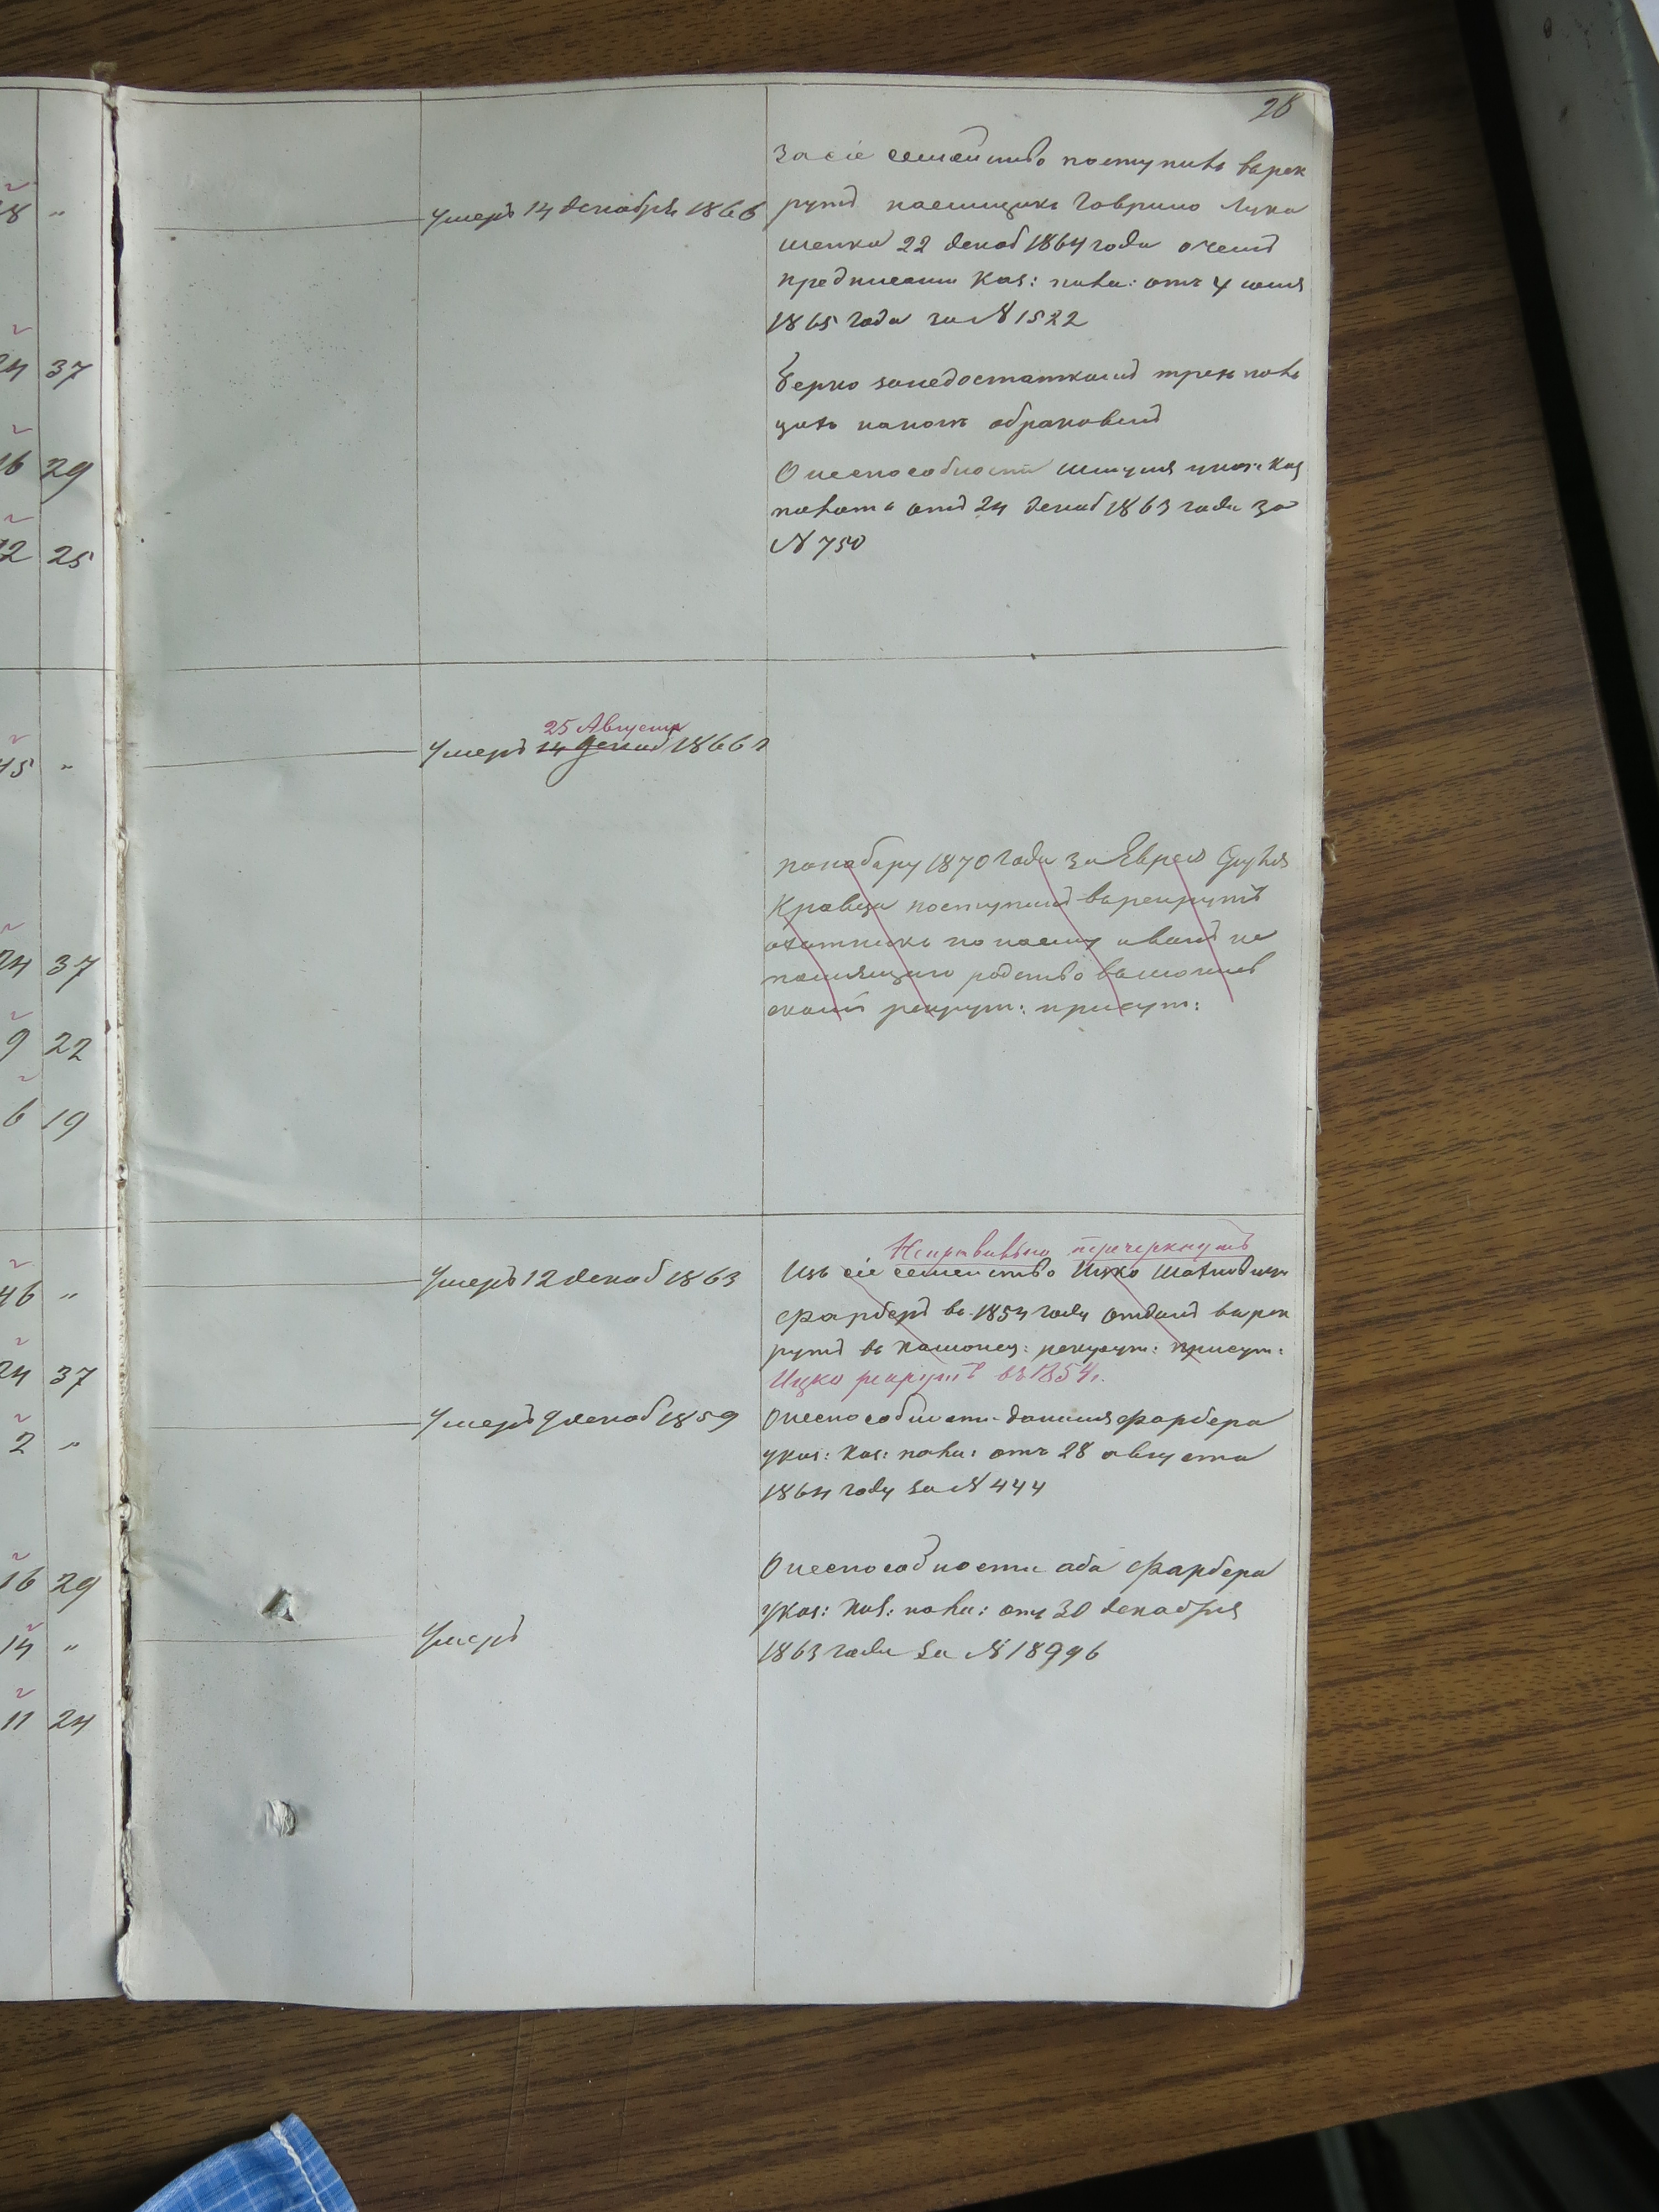 28
18 "
24 37
16 29
12 25
45 "
24 37
9 22
6 19
46 "
24 37
2 "
16 29
14 "
11 24
умеръ 14 декабря 1866
За сіе семейство поступилъ въ рек
рутъ наемщикъ Гаврило Лука
шенко 22 декаб 1864 года о чемъ
предписании Каз: пала: отъ 4 июня
1865 года за № 1522
Берко за недостаткомъ трехъ паль
цовъ
О неспособности Шмуля указ: Каз
палаты отъ 24 декаб 1863 года за
№ 750
25 Августа
Умеръ 14 декаб 1866 г
по набору 1870 года за Еврея Сруля
Кравца поступилъ въ рекруты
охотникъ по найму
родство
рекрут: присут:
Умеръ 12 декаб 1863
Неправильно перечеркнутъ
Изъ сіе семейство Ицко
Фарберъ въ 1854 году отданъ въ рек
рутъ въ рекрут: присут:
Ицко рекрутъ въ 1854 г.
Умеръ 9 декаб 1859
О неспособности Фарбера
указ: Каз: пала: отъ 28 августа
1864 году за № 444
О неспособности аба Фарбера
Указ: Каз: пала: отъ 30 декабря
1863 года за № 18996
Умеръ